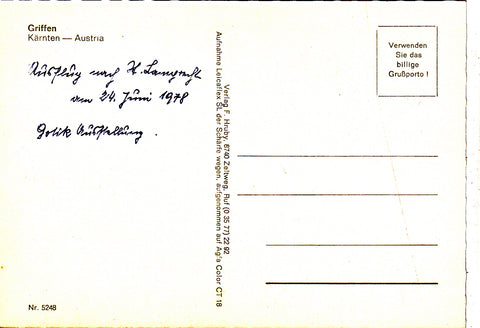 Griffen
Kärnten — Austria
Ausflug nach St. Lamprecht
am 24. Juni 1978
Gotik Ausstellung .
Verlag F. Hruby, 8740 Zeltweg, Ruf (0 35 77) 22 92
Aufnahme Leicaflex SL der Schärfe wegen, aufgenommen auf Agfa Color CT 18
Verwenden
Sie das
billige
Grußporto !
Nr. 5248